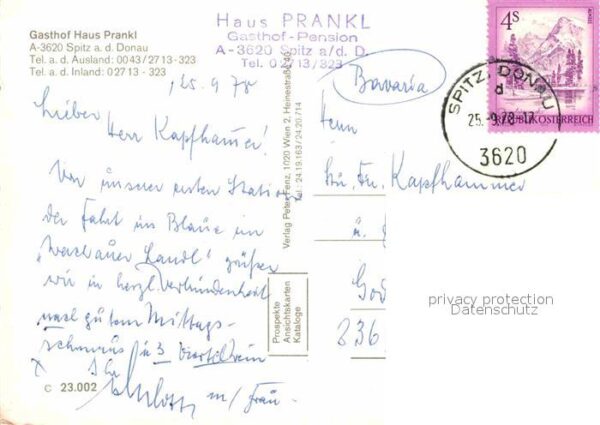 Gasthof Haus Prankl
A-3620 Spitz a. d. Donau
Tel. a. d. Ausland: 0043/2713-323
Tel. a. d. Inland: 02713 - 323
Haus PRANKL
Gasthof-Pension
A-3620 Spitz a/d. D.
Tel. 02713/323
25. 9. 78
Lieber
Herr Kapfhamer!
Von unserer ersten Station
der Fahrt ins Blaue im
"Wachauer Landl" grüßen
wir in herzl. Verbundenheit
nach gutem Mittags-
schmaus u 3 Viertel Wein
Ihr
m/Frau
C 23.002
Verlag Peter Fenz, 1020 Wien 2, Heinestraße 40
Tel.: 24.19.163/24.20.714
Prospekte
Ansichtskarten
Kataloge
Bavaria
Herrn
Kapfhammer
God
836
4S
REPUBLIK ÖSTERREICH
SPITZ, DONAU
d
25.-9.78-17
3620
privacy protection
Datenschutz